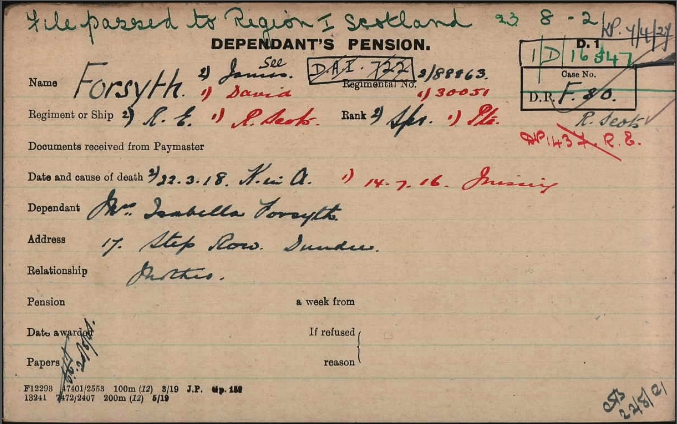 File passed to Region I Scotland 23 8 - 21
DP. 7/4/27
DEPENDANT'S PENSION.
D. 1
1/D/16347
Case No.
Name Forsyth. 2) James. See D.A.1. 722 Regimental No. 2) 88263
1) David 1) 30051
D.R. F. 80.
R. Scots
Regiment or Ship 2) R. E. 1) R. Scots. Rank 2) Spr. 1) Pte.
R. E.
Documents received from Paymaster
Date and cause of death 2) 22.3.18. K. in A. 1) 14.7.16. Missing
Dependant Mrs Isabella Forsyth
Address 17. Step Row. Dundee.
Relationship Mother.
Pension a week from
Date awarded If refused
Papers reason
F12298 47401/2553 100m (12) 3/19 J.P. Gp. 152
13241 7472/2407 200m (12) 5/19
22/8/21